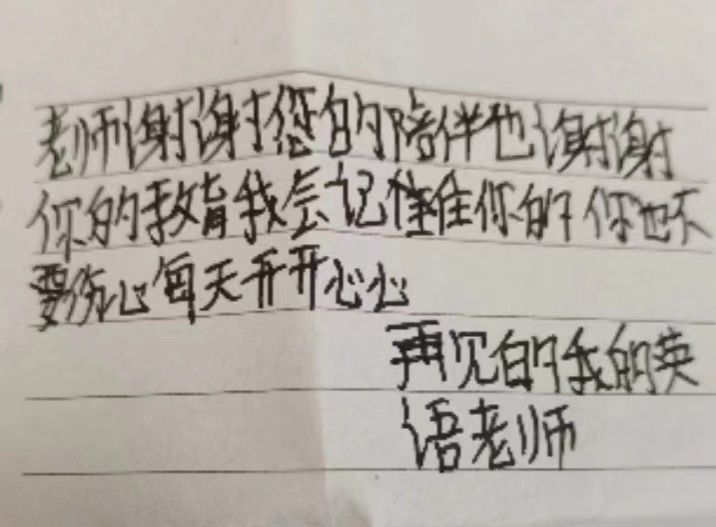 老师谢谢您的陪伴也谢谢
你的教育我会记住住你的你也不
要伤心每天开开心心
再见的我的英
语老师